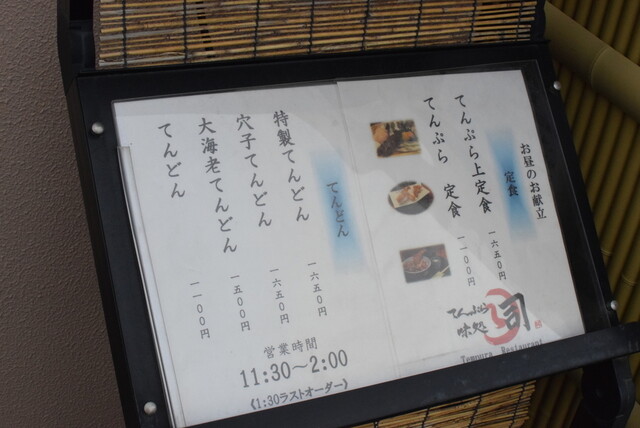 お昼のお献立
定食
てんぷら上定食 一六五〇円
てんぷら 定食 一一〇〇円
てんぷら
味処 司
Tempura Restaurant
てんどん
特製てんどん 一六五〇円
穴子てんどん 一六五〇円
大海老てんどん 一五〇〇円
てんどん 一一〇〇円
営業時間
11:30～2:00
《1:30ラストオーダー》